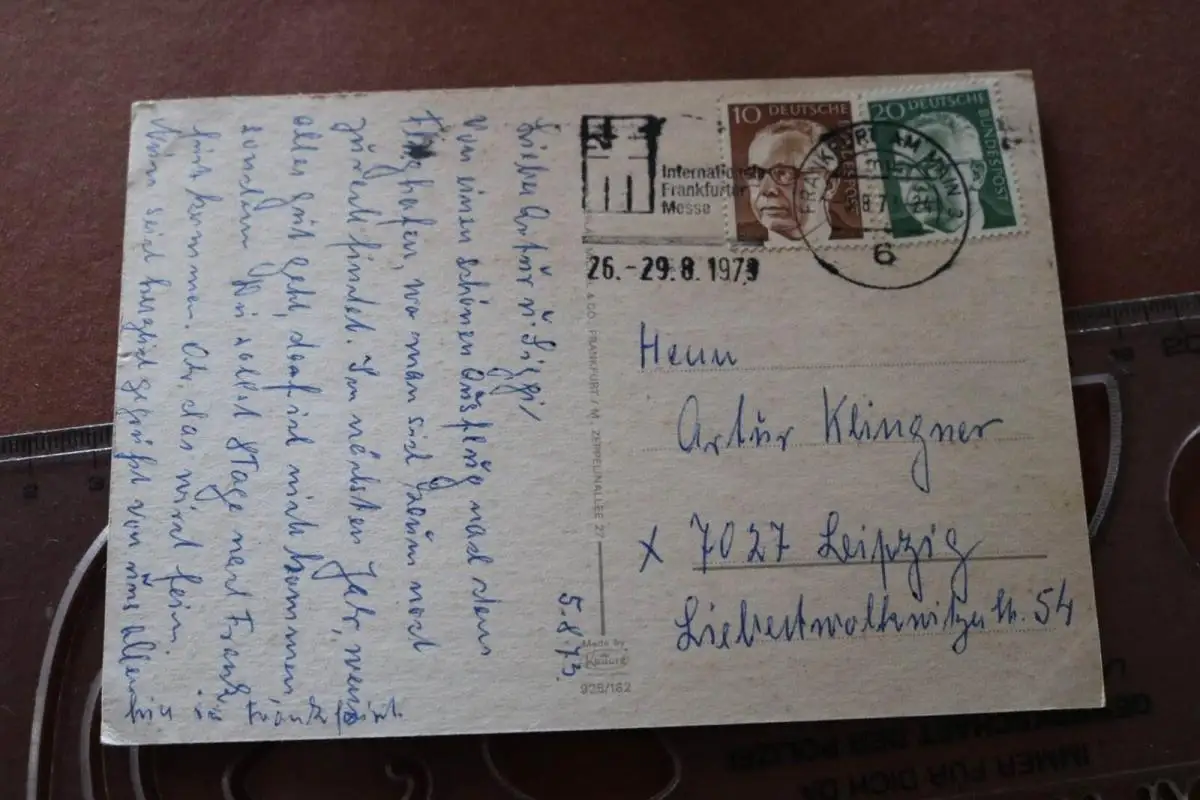 5.8.73.
Lieber Artur u. Sigi/
Von einem schönen Ausflug nach dem
Flughafen, wo man sich kaum noch
zurecht findet. Im nächsten Jahr, wenn
alles gut geht, darf ich nicht kommen,
sondern Du sollst 8 Tage nach Frank-
furt kommen. Au, das wird fein.
Nun seid herzlich gegrüßt von uns allen
hier in Frankfurt.
Internationale
Frankfurter
Messe
26. - 29. 8. 1973
10 DEUTSCHE BUNDESPOST
20 DEUTSCHE BUNDESPOST
FRANKFURT AM MAIN 3
6
& CO. FRANKFURT/M. ZEPPELINALLEE 27
Made by
Krüger
926/182
Herrn
Artur Klingner
X 7027 Leipzig
Liebertwolkwitzer Str. 54
IMMER FÜR DICH DA
GEWERKSCHAFT DER POLIZEI